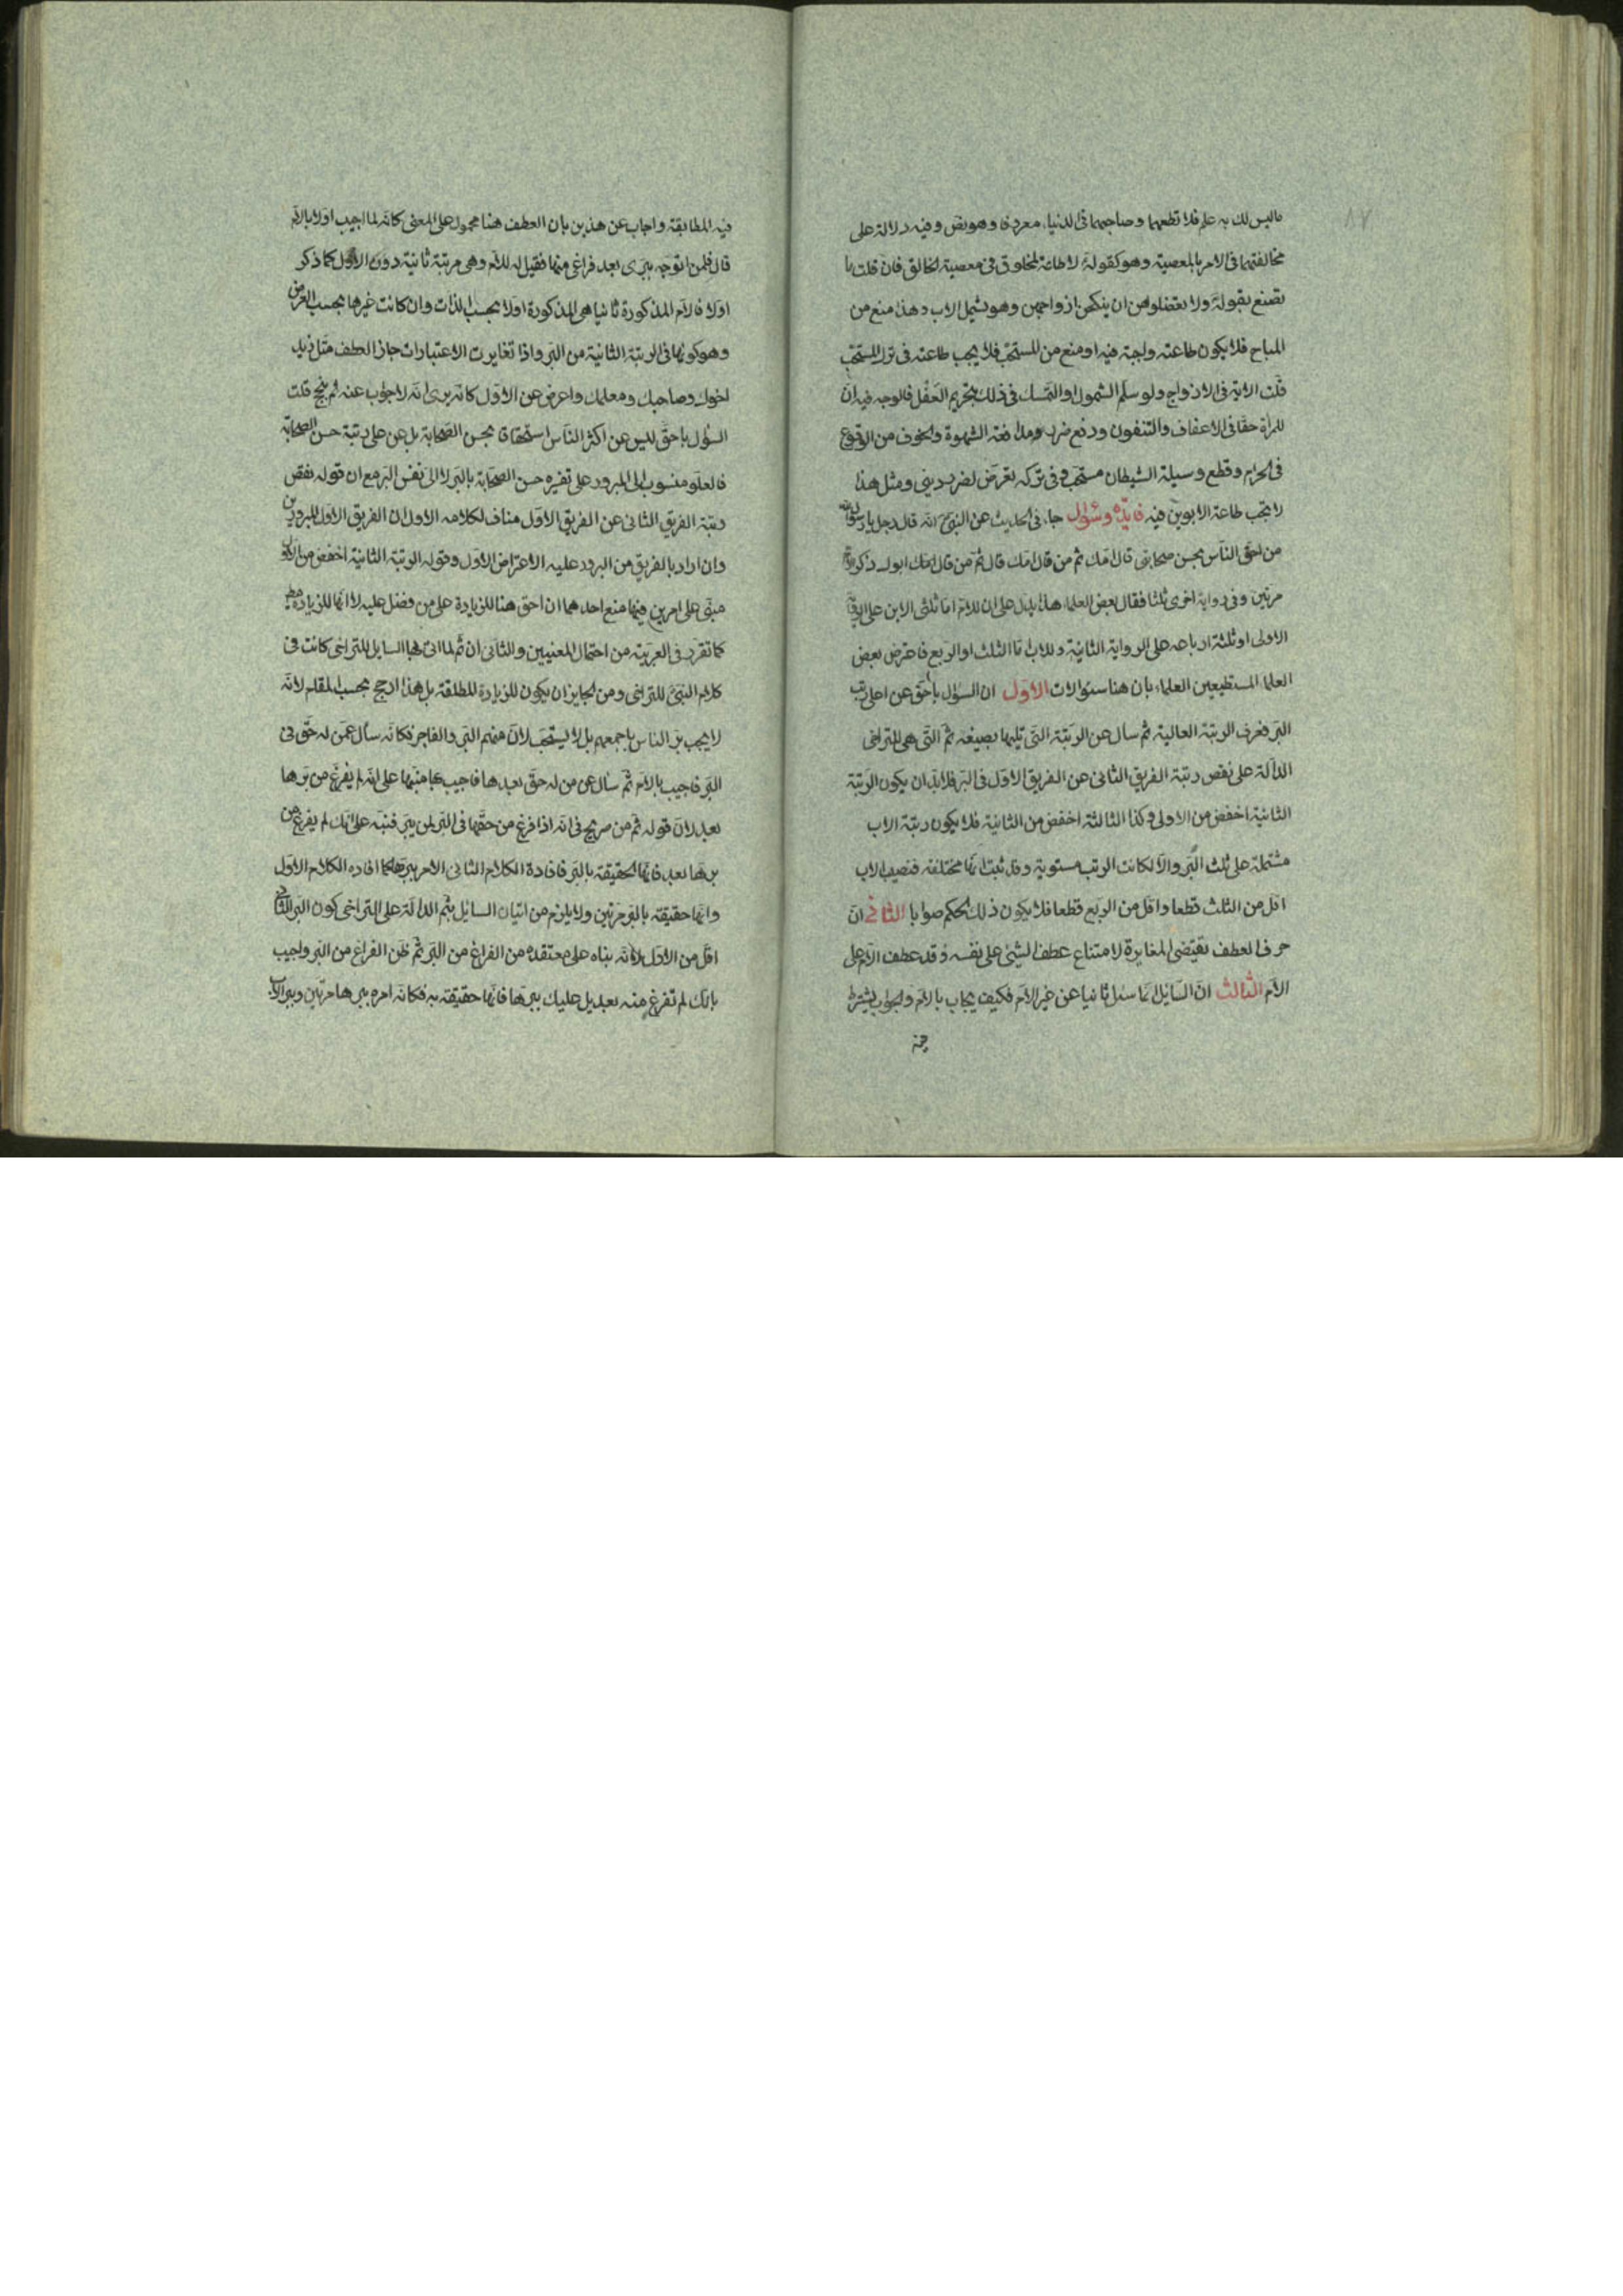 ماليس لك به علم فلا تطعهما وصاحبهما فى الدنيا معروفا وهو نص وفيه دلالة على
مخالفتهما فى الامر بالمعصية وهو كقوله لا طاعة لمخلوق فى معصية الخالق فان قلت ما
تصنع بقوله ولا تعضلوهن ان ينكحن ازواجهن وهو يشمل الاب وهذا منع من
المباح فلا يكون طاعته واجبة فيه او منع من المستحب فلا يجب طاعته فى ترك المستحب
قلت الاية فى الازواج ولو سلم الشمول او التمسك فى ذلك بتحريم العضل فالوجه فيه ان
للمراة حقا فى الاعفاف والتصون ودفع ضرر مدافعة الشهوة والخوف من الوقوع
فى الحرام وقطع وسيلة الشيطان مستحب وفى تركه تعرض لضرر دينى ومثل هذا
لا يجب طاعة الابوين فيه فايدة وسؤال جاء فى الحديث عن النبى انه قال رجل يا رسول الله
من احق الناس بحسن صحابتى قال امك ثم من قال امك قال ثم من قال امك ابوك ذكر الام
مرتين وفى رواية اخرى ثلثا فقال بعض العلماء هذا يدل على ان للام اما ثلثى الابن على الرواية
الاولى او ثلثة ارباعه على الرواية الثانية وللاب اما الثلث او الربع فاعترض بعض
العلما المستطيعين العلماء بان هنا سئوالات الاول ان السؤال باحق عن اعلى رتب
البر فعرف الرتبة العالية ثم سال عن الرتبة التى تليها بصيغة ثم التى هى للتراخى
الدالة على نقص رتبة الفريق الثانى عن الفريق الاول فى البر فلا بد ان يكون الرتبة
الثانية اخفض من الاولى وكذا الثالثة اخفض من الثانية فلا يكون رتبة الاب
مشتملة على ثلث البر والا لكانت الرتب مستوية وقد ثبت انها مختلفة فنصيب الاب
اقل من الثلث قطعا واقل من الربع قطعا فلا يكون ذلك الحكم صوابا الثانى ان
حرف العطف تقيتضى المغايرة لامتناع عطف الشيئ على نفسه وقد عطف الام على
الام الثالث ان السايل انما سئل ثانيا عن غير الام فكيف يجاب بالام والجواب يشترط
فيه
فيه المطابقة واجاب عن هذين بان العطف هنا محمول على المعنى كانه لما اجيب اولا بالام
قال فلمن اتوجه ببرى بعد فراغى منها فقيل له للام وهى مرتبة ثانية دون الاول كما ذكر
اولا فالام المذكورة ثانيا هى المذكورة اولا بحسب الذات وان كانت غيرها بحسب العرض
وهو كونها فى الرتبة الثانية من البر واذا تغايرت الاعتبارات جاز العطف مثل زيد
اخوك وصاحبك ومعلمك واعرض عن الاول كانه يرى انه لا جواب عنه ثم بنج قلت
السؤل باحق ليس عن اكثر الناس استحقاقا بحسن الصحابة بل عن على رتبة حسن الصحابة
فالعلو منسوب الى المبرور على تفسيره حسن الصحابة بالبر لا الى نفس البر مع ان قوله نقص
رتبة الفريق الثانى عن الفريق الاول مناف لكلامه الاول ان الفريق الاول المبرورين
وان اراد بالفريق من البر ورد عليه الاعتراض الاول وقوله الرتبة الثانية اخفض من الاولى
مبنى على امرين فيهما منع احدهما ان احق هنا للزيادة على من فضل عليه لا انها للزيادة مطلقا
كما تقرر فى العربية من احتمال المعنيين والثانى ان ثم لما اتى بها السايل للتراخى كانت فى
كلام النبى للتراخى ومن الجايز ان يكون للزيادة المطلقة بل هذا ارجح بحسب المقام لانه
لا يجب بر الناس باجمعهم بل لا يستحب لان منهم البر والفاجر فكانه سأل عمن له حق فى
البر فاجيب بالام ثم سأل عن من له حق بعدها فاجيب بها منبها على انه لم يفرغ من برها
بعد لان قوله ثم من صريح فى انه اذا فرغ من حقها فى البر لمن يبر فنبه على انك لم يفرغ من
برها بعد فانها الحقيقة بالبر فافادة الكلام الثانى الامر ببرها كما افاده الكلام الاول
وانها حقيقة بالبر مرتين ولا يلزم من اتيان السايل بثم الدالة على التراخى كون البر الثانى
اقل من الاول لانه بناه على معتقده من الفراغ من البر ثم ظن الفراغ من البر واجيب
بانك لم تفرغ منه بعد بل عليك ببرها فانها حقيقة به فكانه امره ببرها مرتين وببر الاب